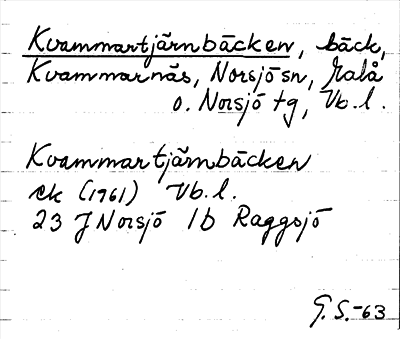 Kvammartjärnbäcken, bäck,
Kvammarnäs, Norsjö sn, Malå
o. Norsjö tg, Vb. l.
Kvammartjärnbäcken
ek (1961) Vb. l.
23 J Norsjö 1b Raggsjö
G. S. -63